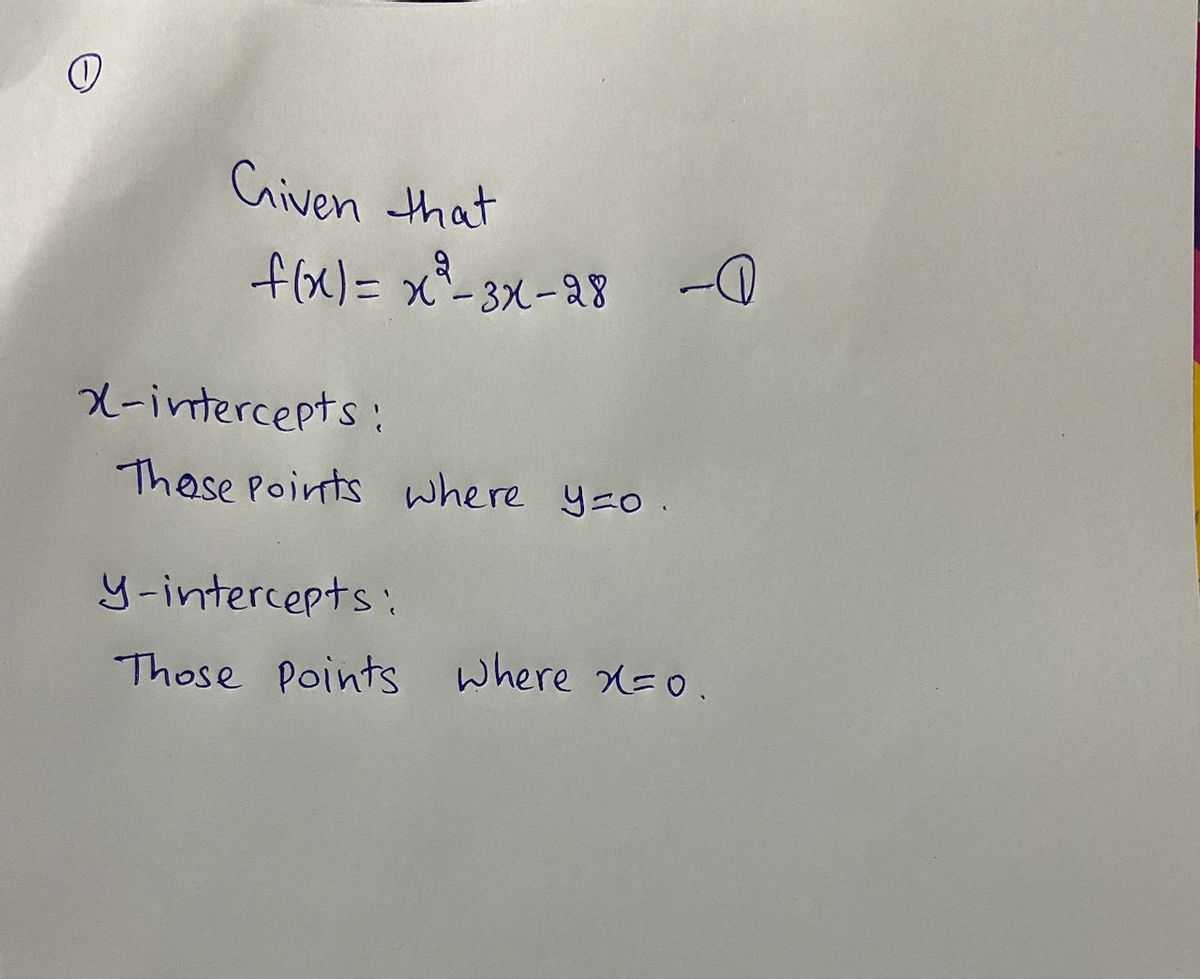 ①
Given that
f(x) = x² - 3x - 28 - ①
x-intercepts:
Those points where y=0.
y-intercepts:
Those points where x=0.